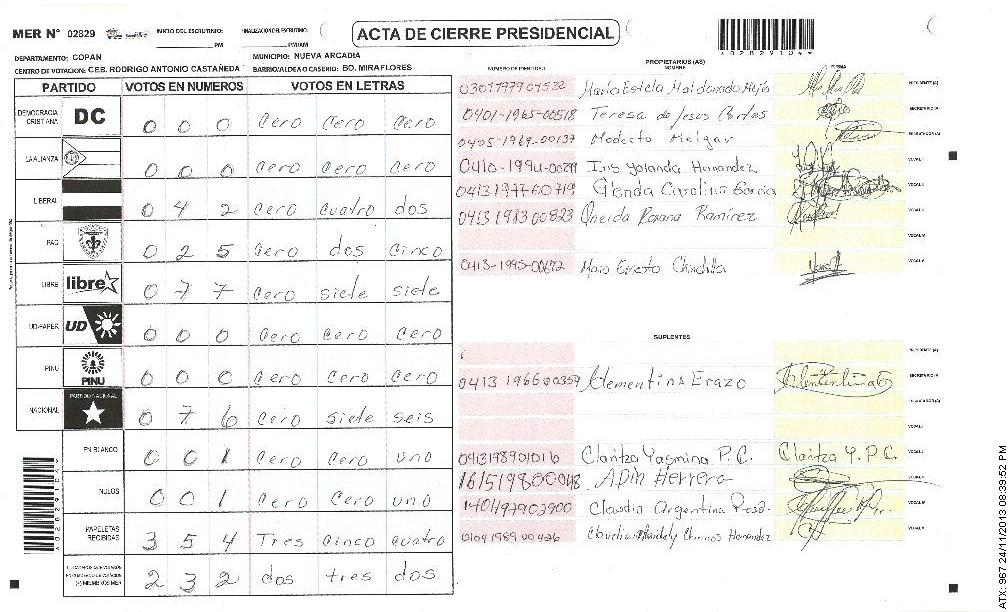 MER N° 02829
INICIO DEL ESCRUTINIO: PM
FINALIZACION DEL ESCRUTINIO: PM/AM
ACTA DE CIERRE PRESIDENCIAL
DEPARTAMENTO: COPAN
MUNICIPIO: NUEVA ARCADIA
CENTRO DE VOTACION: CEB. RODRIGO ANTONIO CASTAÑEDA
BARRIO/ALDEA O CASERIO: BO. MIRAFLORES
PARTIDO VOTOS EN NUMEROS VOTOS EN LETRAS
DEMOCRACIA CRISTIANA DC 0 0 0 Cero Cero Cero
LA ALIANZA 0 0 0 Cero Cero Cero
LIBERAL 0 4 2 Cero Cuatro dos
PAC 0 2 5 Cero dos Cinco
LIBRE libre 0 7 7 Cero siete siete
UD-FAPER UD 0 0 0 Cero Cero Cero
PINU PINU 0 0 0 Cero Cero Cero
NACIONAL PARTIDO NACIONAL 0 7 6 Cero siete seis
EN BLANCO 0 0 1 Cero Cero uno
NULOS 0 0 1 Cero Cero uno
PAPELETAS RECIBIDAS 3 5 4 Tres Cinco Cuatro
(+) MIEMBROS MER 2 3 2 dos tres dos
NUMERO DE IDENTIDAD PROPIETARIOS (AS) NOMBRE FIRMA
Maria Estela Maldonado Mejia PRESIDENTE (A)
0401-1965-00518 Teresa de Jesus Cortes SECRETARIO (A)
0405-1969-00137 Modesto Melgar ESCRUTADOR (A)
Iris Yolanda Hernandez VOCAL I
0413197760719 Glenda Carolina Garcia VOCAL II
0413198300823 Oneida Roxana Ramirez
0413-1995-00672 Chinchilla
SUPLENTES
PRESIDENTE (A)
0413196600359 Clementina Erazo SECRETARIO (A)
ESCRUTADOR (A)
VOCAL I
0413198901016 Claritza Yasmina P.C. Claritza Y. P.C.
Herrera
1401197903900 Claudia Argentina
Claudia Hernandez
*02829104*
ATX: 967 24/11/2013 08:39:52 PM